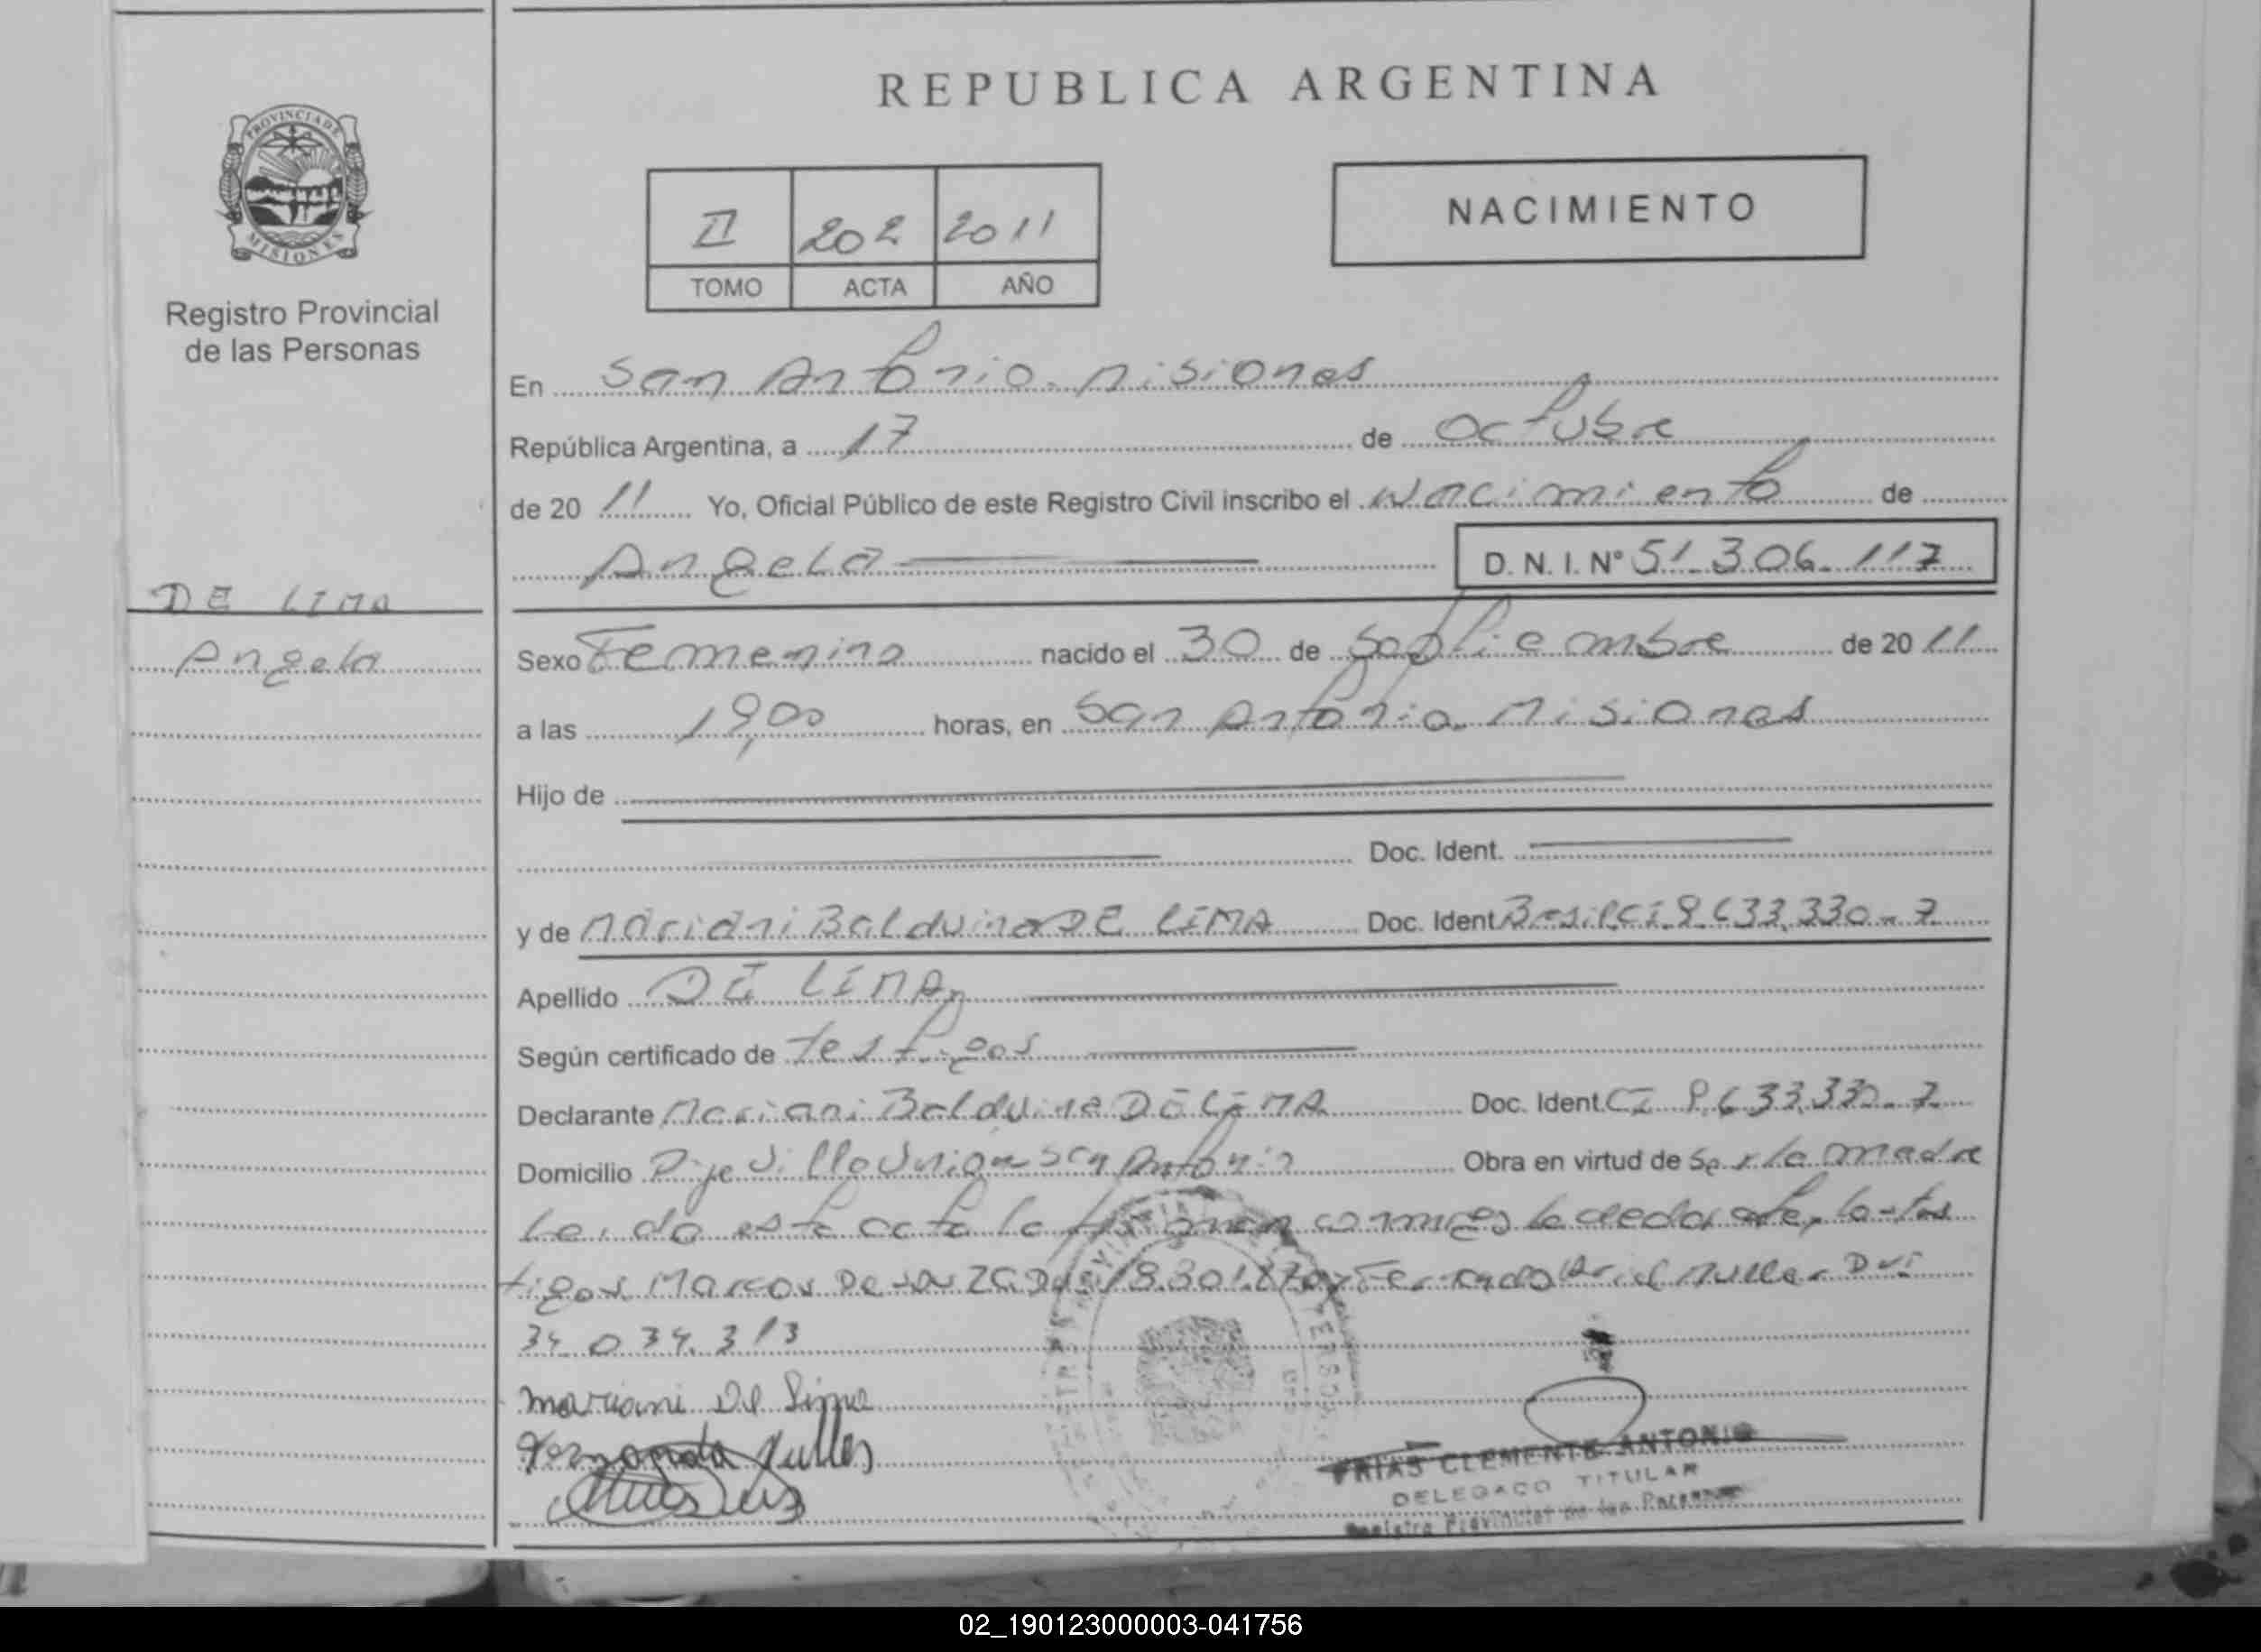 REPUBLICA ARGENTINA
PROVINCIA DE
MISIONES
Registro Provincial
de las Personas
II 202 2011
TOMO ACTA AÑO
NACIMIENTO
En San Antonio. Misiones
República Argentina, a 17 de octubre
de 20 11 Yo, Oficial Público de este Registro Civil inscribo el Nacimiento de
Angela D. N. I. Nº 51.306.117
DE LIMA
Angela
Sexo Femenino nacido el 30 de Septiembre de 20 11
a las 19,00 horas, en San Antonio. Misiones
Hijo de
Doc. Ident.
y de Mariani Balduina DE LIMA Doc. Ident Brasil CI 9.633.330-7
Apellido DE LIMA
Según certificado de Testigos
Declarante Mariani Balduina DE LIMA Doc. Ident. CI 9.633.330-7
Domicilio Pje Villa Union San Antonio Obra en virtud de Ser la madre
Leida esta acta la firman conmigo la declarante, los tes
tigos Marcos De 18.301. Muller DNI
34.034.313
Mariani De Lima
Fernando Muller
FRIAS CLEMENTE ANTONIO
DELEGADO TITULAR
Registro Provincial de las Personas
02_190123000003-041756